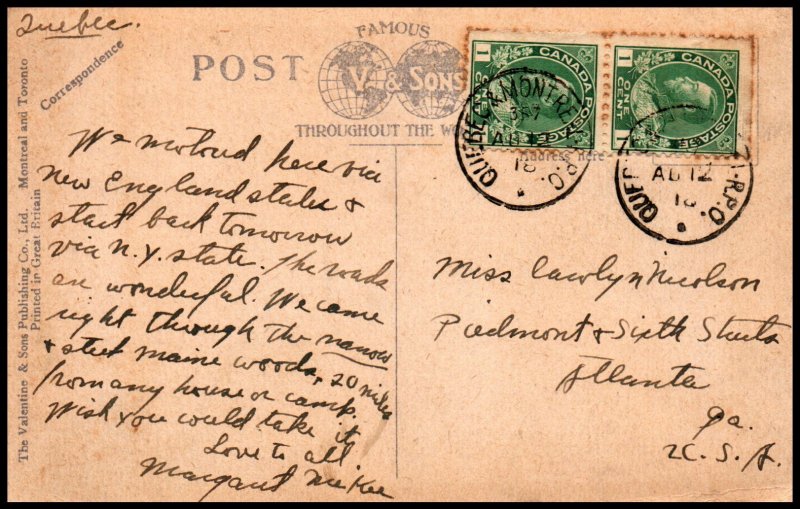 Quebec.
Correspondence
POST
FAMOUS
V. & SONS
THROUGHOUT THE WO
Address here
1 CENT CANADA POSTAGE
1 ONE CENT CANADA POSTAGE 1
QUEBEC & MONTRE R.P.O.
AU 12
18
QUE R.P.O.
AU 12
18
We motored here via
New England states &
start back tomorrow
via N.Y. state. The roads
are wonderful. We came
right through the narrow
& steep Maine woods, 20 miles
from any house or camp.
Wish you could take it
Love to all
Margaret McKee
Miss Carolyn Nicolson
Piedmont & Sixth Streets
Atlanta
Ga.
U.S.A.
The Valentine & Sons Publishing Co., Ltd. Montreal and Toronto
Printed in Great Britain